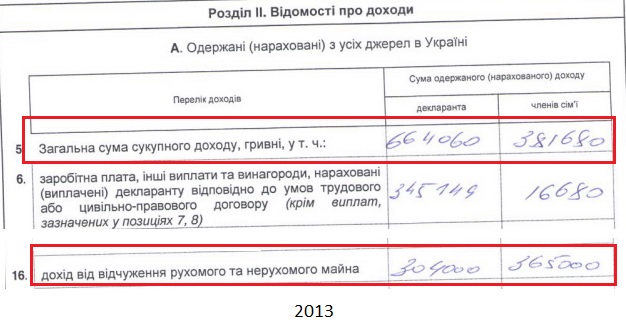 Розділ II. Відомості про доходи
А. Одержані (нараховані) з усіх джерел в Україні
Перелік доходів
Сума одержаного (нарахованого) доходу
декларанта
членів сім'ї
5. Загальна сума сукупного доходу, гривні, у т. ч.: 664060 381680
6. заробітна плата, інші виплати та винагороди, нараховані
(виплачені) декларанту відповідно до умов трудового
або цивільно-правового договору (крім виплат,
зазначених у позиціях 7, 8)
345149 16680
16. дохід від відчуження рухомого та нерухомого майна 304000 365000
2013